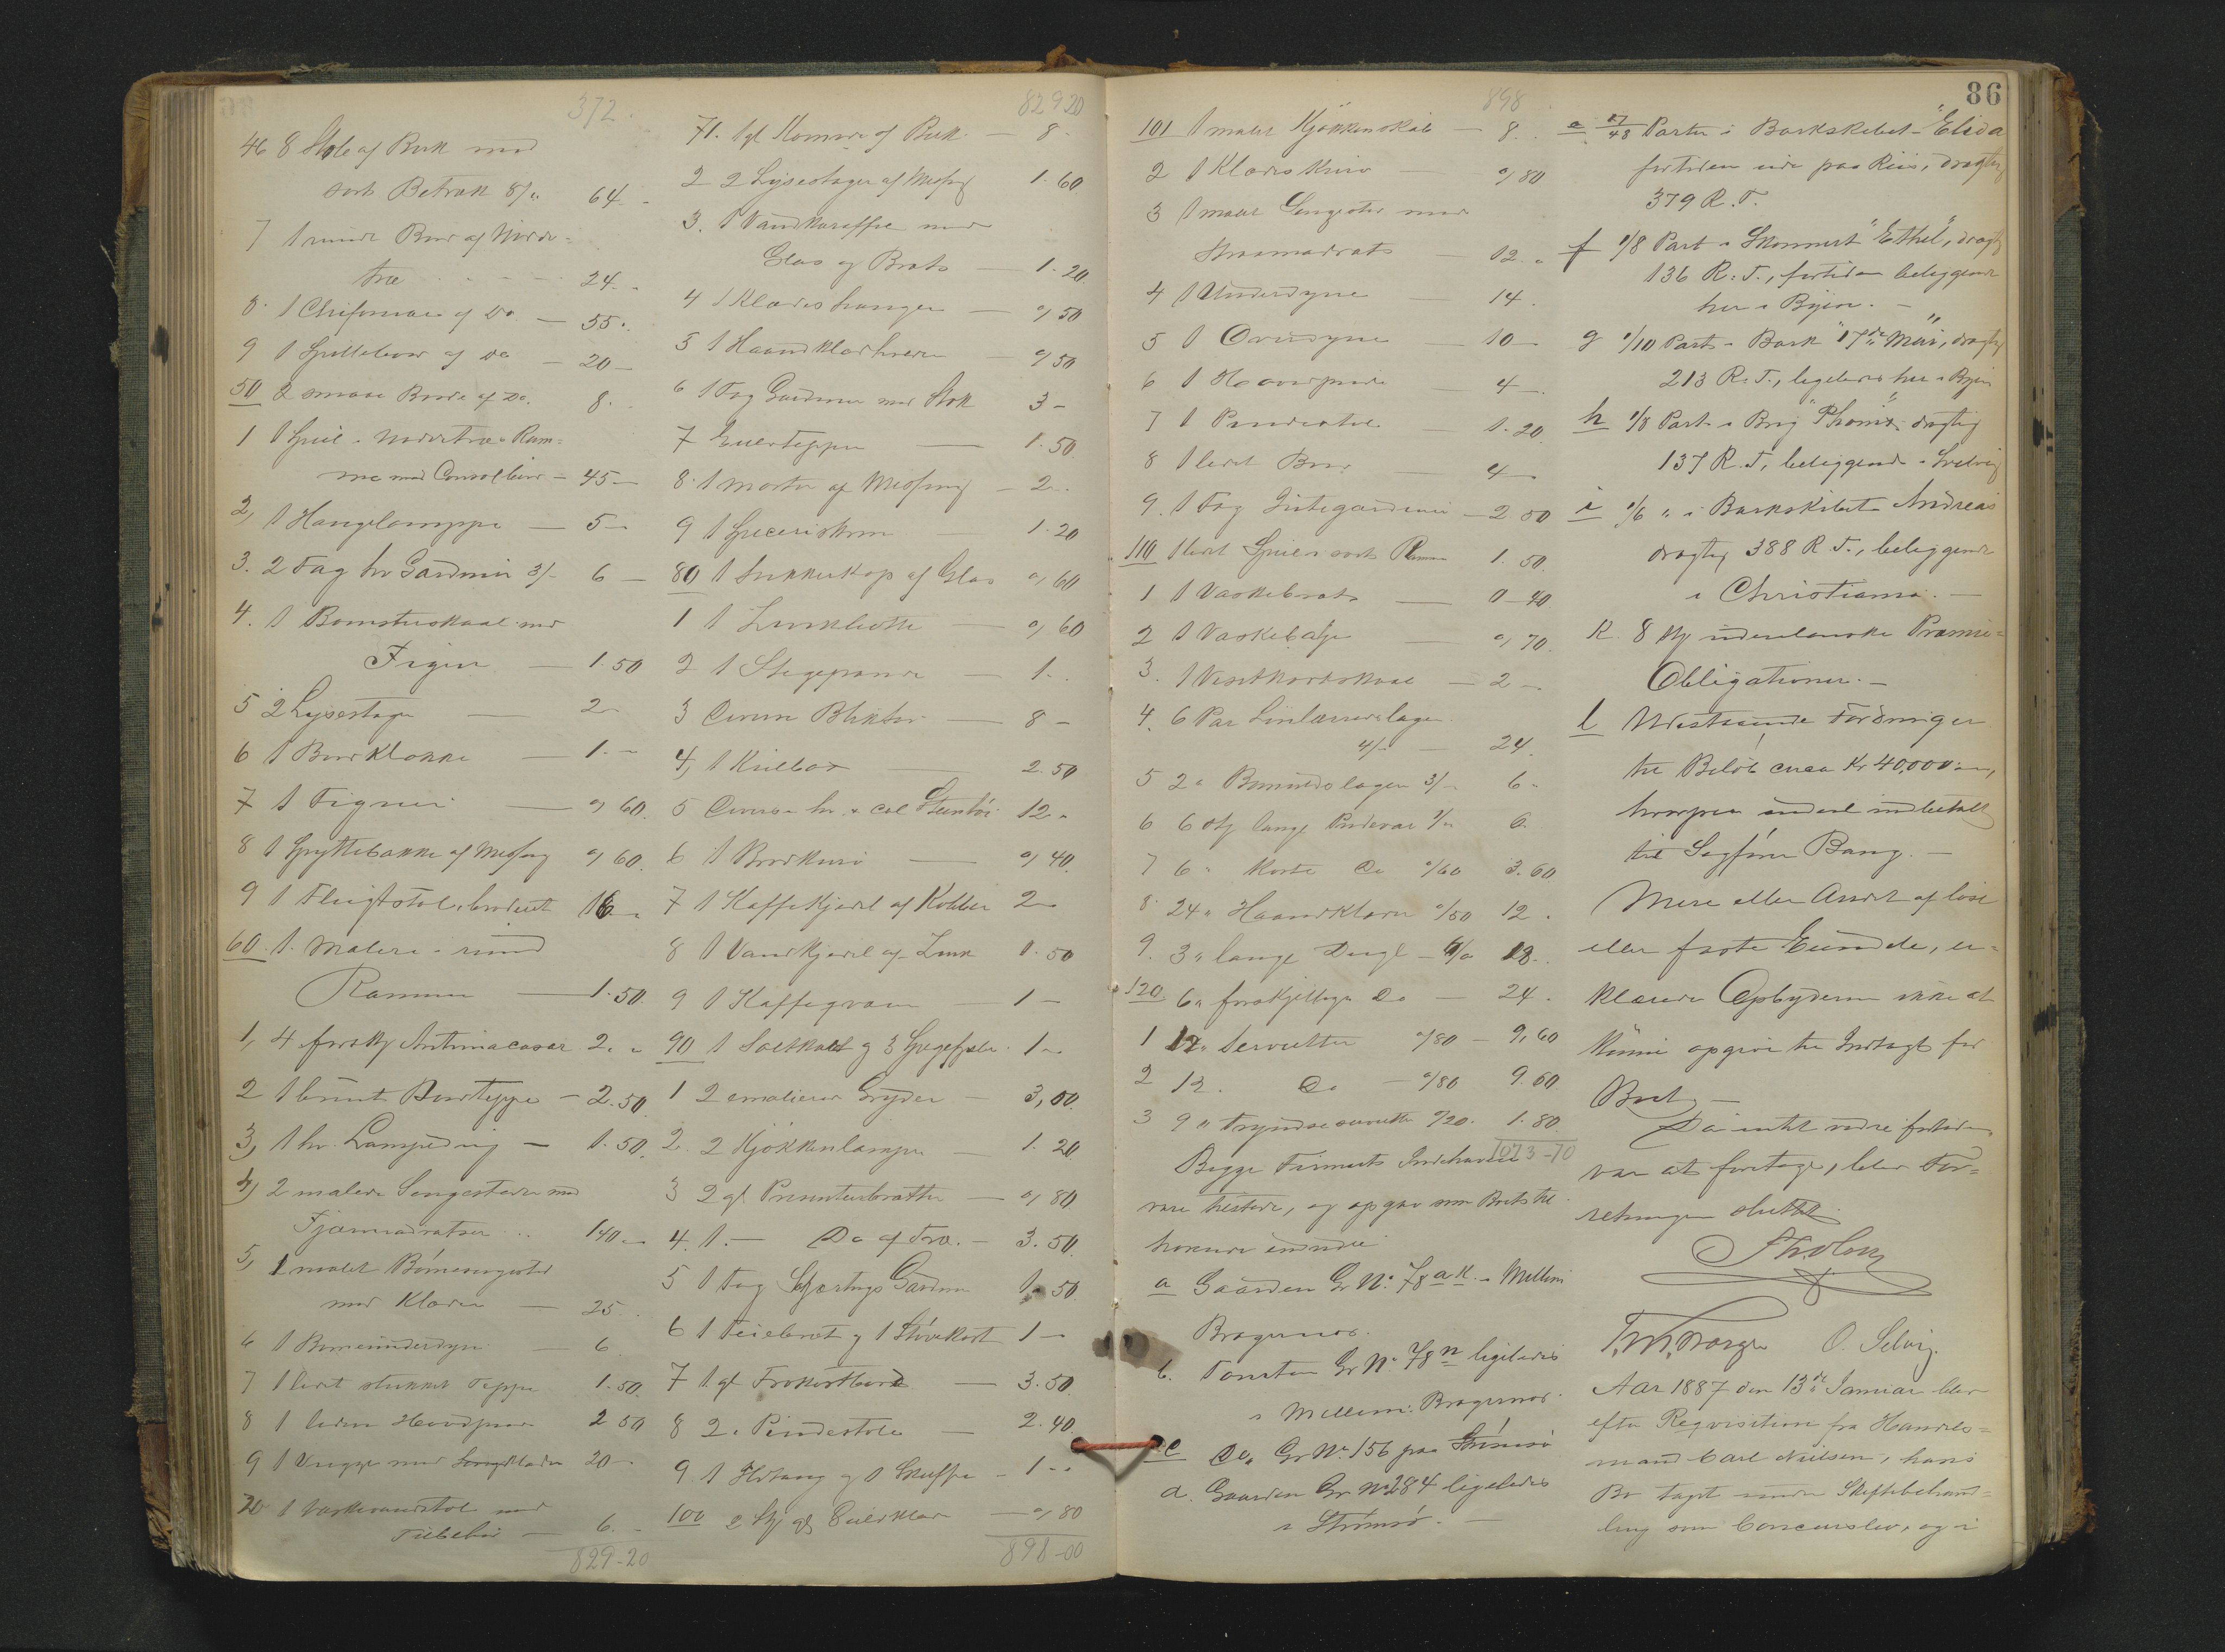 372.
46 8 Stole af Birk med
sort Betræk 8/" 64. -
7 1 rundt Bord af Nödde=
træ - - - 24. -
8. 1 Chifonniere af Do — 55.
9 1 Spillebord af Do — 20 —
50 2 smaa Borde af Do. 8. -
1 1 Speil i Nöddetræs Ram=
me med Consolbord — 45 —
2, 1 Hængelampe — 5 —
3. 2 Fag hv Gardiner 3/- 6 —
4. 1 Blomsterskaal med
Figur — 1.50
5 2 Lysestager — 2 -
6 1 Bordklokke — 1. -
7 1 Figur — "60.
8 1 Spyttebakke af Messing "60.
9 1 Fløistol, broderet 16 -
60. 1. Maleri i rund
Ramme — 1.50.
1, 4 forskj Antimacasar 2. -
2 1 brunt Bordteppe — 2.50.
3, 1 hv. Lampedug — 1.50.
4, 2 malede Sengesteder med
Fjærmadratser .. 140 -
5, 1 malet Börnesengested
med Klæder — 25
6 1 Börneunderdyne — 6
7 1 lidet stukket Teppe 1.50.
8 1 liden Hovedpude 2 50
9 1 Vugge med Sengeklæder 20 -
70 1 Vaskevandstol med
Tilbehör — 6. -
829-20
829 20
71. 1 gl Komode af Birk — 8 -
2 2 Lysestager af Messing 1.60
3. 1 Vandkaraffe med
Glas og Bret — 1.20
4 1 Klædeshænger — "50
5 1 Haandklædholder "50
6 1 Fag Gardiner med Stok 3 -
7 Gulvteppe — 1.50
8. 1 Morter af Messing — 2. -
9 1 Specerisk — 1.20
80 1 Sukkerkop af Glas "60
1 1 Zinkbötte — "60
2 1 Stegepande — 1. -
3 Diverse Bliktöi — 8 -
4, 1 Kulbox — 2.50
5 Diverse hv. & col Stentöi 12 "
6 1 Brödkniv — "40.
7 1 Kaffekjedel af Kobber 2 -
8 1 Vandkjedel af Zink 1.50
9 1 Kaffeqværn — 1 —
90 1 Saltkar og 3 1 -
1 2 emalierte Gryder — 3,00.
2. 2 Kjökkenlamper — 1.20
3 2 gl Presenteerbretter — "80
4. 1. — Do af Træ. — 3.50.
5 1 Fag Gardiner 1. 50.
6 1 Feiebret og 1 Stövekost 1 —
7 1 gl Frokostbord — 3.50
8 2. Pindestole — 2.40.
9. 1 Ildtang og 1 Skuffe — 1 -
100 2 Stk gl Gulvklæder — "80
898-00
898
101 1 malet Kjökkenskab — 8.
2 1 Klædeskurv — "80
3 1 malet Sengested med
Straamadrats — 12. "
4 1 Underdyne — 14.
5 1 Overdyne — 10 -
6 1 Hovedpude — 4 -
7 1 Pindestol — 1.20.
8 1 lidet Bord — 4 -
9. 1 Fag Sirtsgardiner — 2 50
110 1 lidet Speil i sort Ramme 1.50.
1 1 Vaskebret — 0-40.
2 1 Vaskebalje — "70.
3. 1 Visitkortskaal — 2 -
4. 6 Par Linlærredslagen
4/- — 24.
5 2 " Bomuldslagen 3/- 6 "
6 6 Stk lange Pudevar 1/" 6.
7 6 " korte Do "/60 3.60
8. 24 " Haandklæder "/50 12.
9. 3 " lange Dugl — 6/" 18.
120 6 " forskjellige Do — 24.
1 12 " Servietter "/80 — 9,60
2 12. Do — "/80 9.60.
3 9 " Fryndseservietter "/20. 1.80.
1073-70
Begge Firmaets Indehavere
vare tilstede, og opgav som Boets til
hörende endnu
a Gaarden Gr N: 78 ak. i Mellem
Bragernæs.
b. Tomten Gr N: 78 n ligeledes
i Mellem: Bragernæs.
c Do, Gr No. 156 paa Strömsö
d. Gaarden Gr No 284 ligeledes
i Strömsö. —
86
e 17/48 Parter i Barkskibet "Elida
fortiden ude paa Reis, drægtig
379 R. T.
f 1/8 Part i Skonnert "Ethel", drægtig
136 R. T., fortiden beliggende
her i Byen. —
g 1/10 Part i Bark "17de Mai", drægtig
213 R. T., ligeledes her i Byen
h 1/8 Part i Brig "Phönix" drægtig
137 R. T., beliggende i Svelvig
i 1/6 " i Barkskibet Andreas
drægtig 388 R T., beliggende
i Christiania. —
k. 8 Stk udenlandske Præmie=
Obligationer. —
l Udestaaende Fordringer
til Beløb circa Kr 40,000:-,
hvorpaa endel indbetalt
til Sagförer Bang. —
Mere eller Andet af löst
eller fast Eiendele, er=
klærede Opbyderne ikke at
kunne opgive til Indtægt for
Boet —
Da intet videre fortiden
var at foretage, blev For=
retningen sluttet.
O. Selvig.
Aar 1887 den 13de Januar blev
efter Reqvisition fra Handels=
mand Carl Nielsen, hans
Bo taget under Skiftebehand=
ling som Concursbo, og i